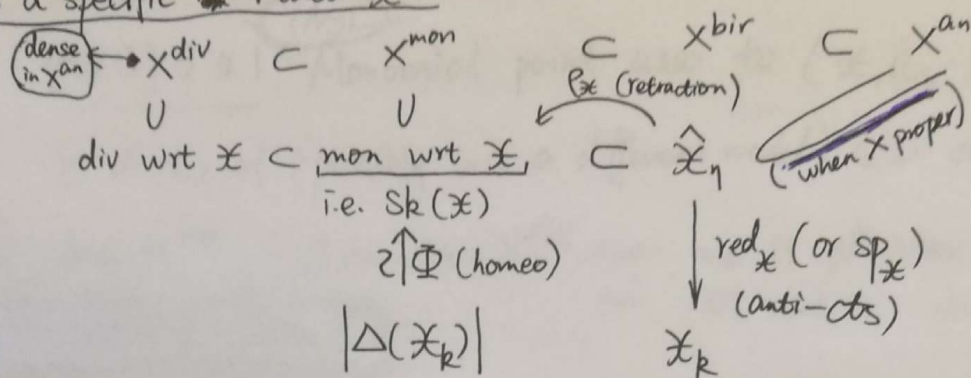 a specific
dense in X^an ↔ • X^div ⊂ X^mon ⊂ X^bir ⊂ X^an
∪ ∪ ρ_𝒳 (retraction)
div wrt 𝒳 ⊂ mon wrt 𝒳, ⊂ 𝒳̂_η (when X proper)
i.e. Sk(𝒳)
≀↑Φ (homeo) ↓ red_𝒳 (or sp_𝒳)
(anti-cts)
|Δ(𝒳_k)| 𝒳_k